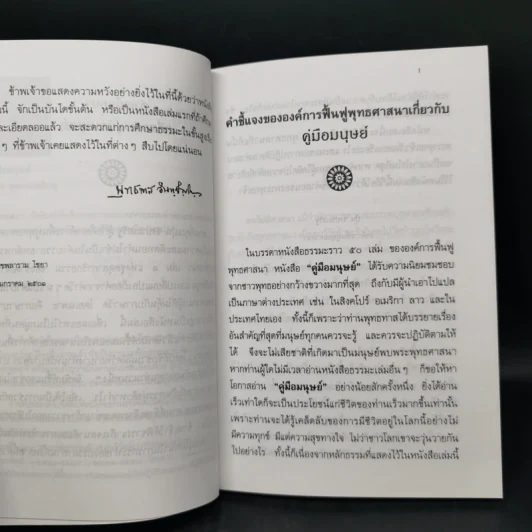 ข้าพเจ้าขอแสดงความหวังอย่างยิ่งไว้ในที่นี้ด้วยว่าหนังสือ
นี้ จักเป็นบันไดขั้นต้น หรือเป็นหนังสือเล่มแรกที่
ละเอียดลออแล้ว จะสะดวกแก่การศึกษาธรรมะในชั้นสูง
ๆ ที่ข้าพเจ้าเคยแสดงไว้ในที่ต่างๆ สืบไปโดยแน่นอน
พุทธทาส อินทปัญโญ
ไชยา
มกราคม ๒๕๐๑
1
คำชี้แจงขององค์การฟื้นฟูพุทธศาสนาเกี่ยวกับ
คู่มือมนุษย์
ในบรรดาหนังสือธรรมะราว ๕๐ เล่ม ขององค์การฟื้นฟู
พุทธศาสนา หนังสือ "คู่มือมนุษย์" ได้รับความนิยมชมชอบ
จากชาวพุทธอย่างกว้างขวางมากที่สุด ถึงกับมีผู้นำเอาไปแปล
เป็นภาษาต่างประเทศ เช่น ในสิงคโปร์ อเมริกา ลาว และใน
ประเทศไทยเอง ทั้งนี้ก็เพราะว่าท่านพุทธทาสได้บรรยายเรื่อง
อันสำคัญที่สุดที่มนุษย์ทุกคนควรจะรู้ และควรจะปฏิบัติตามให้
ได้ จึงจะไม่เสียชาติที่เกิดมาเป็นมนุษย์พบพระพุทธศาสนา
หากท่านผู้ใดไม่มีเวลาอ่านหนังสือธรรมะเล่มอื่น ๆ ก็ขอให้หา
โอกาสอ่าน "คู่มือมนุษย์" อย่างน้อยสักครั้งหนึ่ง ยิ่งได้อ่าน
เร็วเท่าใดก็จะเป็นประโยชน์แก่ชีวิตของท่านเร็วมากขึ้นเท่านั้น
เพราะท่านจะได้รู้เคล็ดลับของการมีชีวิตอยู่ในโลกนี้อย่างไม่
มีความทุกข์ มีแต่ความสุขทางใจ ไม่ว่าชาวโลกเขาจะวุ่นวายกัน
ไปอย่างไร ทั้งนี้ก็เนื่องจากหลักธรรมที่แสดงไว้ในหนังสือเล่มนี้